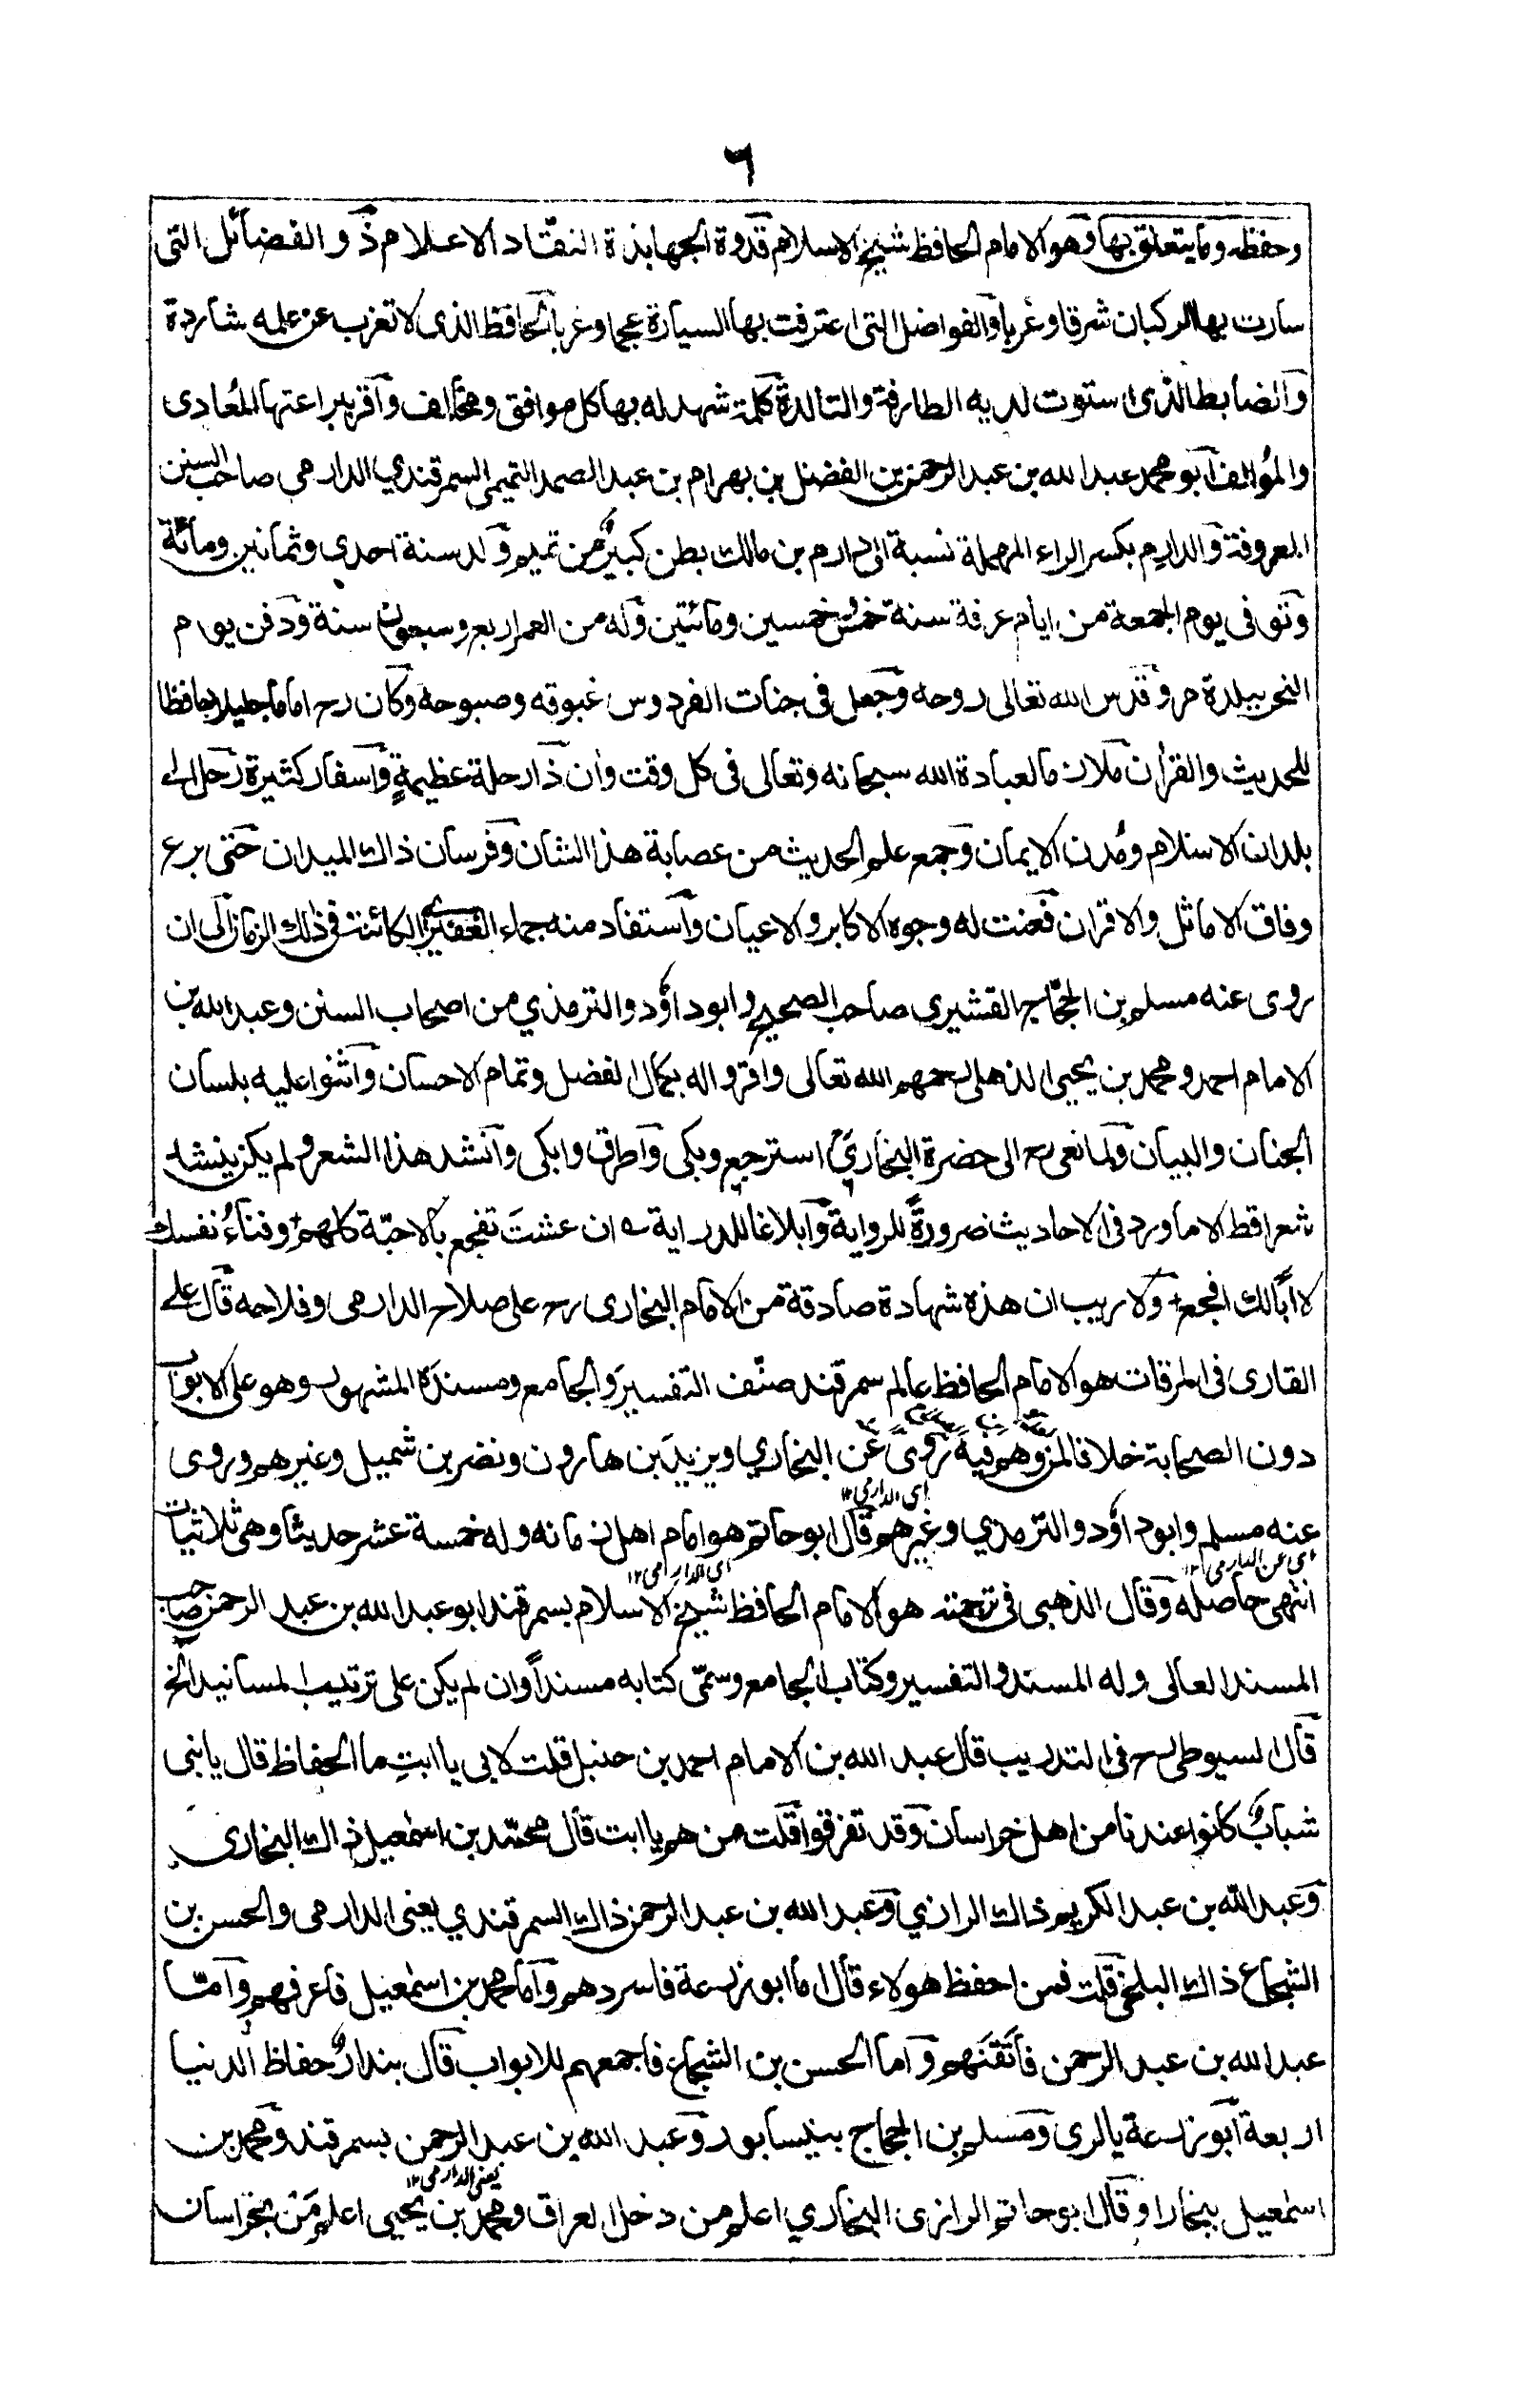 ٦
وحفظه وما يتعلق بها وهو الامام الحافظ شيخ الاسلام قدوة الجهابذة النقاد الاعلام ذو الفضائل التى
سارت بها الركبان شرقا وغربا والفواضل التى اعترفت بها السيارة عجما وغربا الحافظ الذى لا تعزب عن علمه شاردة
والضابط الذى استوت لديه الطارفة والتالدة كلمة شهد له بها كل موافق ومخالف واقر ببراعتها المُعادى
والمُؤالف ابو محمد عبد الله بن عبد الرحمن بن الفضل بن بهرام بن عبد الصمد التميمى السمرقندي الدارمى صاحب السنن
المعروفة والدارِم بكسر الراء المهملة نسبة الى دارم بن مالك بطن كبير من تميم ولد سنة احدى وثمانين ومائة
وتوفى يوم الجمعة من ايام عرفة سنة خمس خمسين ومائتين وله من العمر اربع وسبعون سنة ودفن يوم
النحر ببلدة مرو قدس الله تعالى روحه وجعل فى جنات الفردوس غبوقه وصبوحه وكان رح اماما جليلا حافظا
للحديث والقرأن ملازما لعبادة الله سبحانه وتعالى فى كل وقت وأن ذا رحلة عظيمةٍ واسفار كثيرة رحل الے
بلدان الاسلام ومُدن الايمان وجمع علم الحديث من عصابة هذا الشان وفرسان ذالك الميدان حتى برع
وفاق الاماثل والاقران فعنت له وجوه الاكابر والاعيان واستفاد منه جماء الغفير الكائنة فى ذلك الزمان الى ان
روى عنه مسلم بن الحجّاج القشيرى صاحب الصحيح وابوداؤد والترمذي من اصحاب السنن وعبد الله بن
الامام احمد ومحمد بن يحيى الذهلى رحمهم الله تعالى واقروا له بكمال الفضل وتمام الاحسان واثنوا عليه بلسان
الجنان والبيان ولما نعى رح الى حضرة البخاريّ استرجع وبكى واطرق وابكى وانشد هذا الشعر ولم يكن ينشد
شعرا قط الا ما ورد فى الاحاديث ضرورةً للرواية وابلاغا للدراية ۔ ان عشتَ تفجع بالاحبّة كلهم + وفناءُ نفسك
لا ابًالك افجع + ولا ريب ان هذه شهادة صادقة من الامام البخارى رح على صلاح الدارمى وفلاحه قال على
القارى فى المرقات هو الامام الحافظ عالم سمرقند صنّف التفسير والجامع ومسنده المشهور وهو على الابواب
دون الصحابة خلافا لمن وهم فيه روى عن البخاري ويزيد بن هارون ونضر بن شميل وغيرهم وروى
اى الدارمى ١٢
عنه مسلم وابوداؤد والترمذي وغيرهم قال ابو حاتم هو امام اهل زمانه وله خمسة عشر حديثا وهى ثلاثيات
اى عن الدارمى ١٢
اى الدارمى ١٢
انتهى حاصله وقال الذهبى فى ترجمته هو الامام الحافظ شيخ الاسلام بسمرقند ابو عبد الله بن عبد الرحمن صاحب
المسند العالى وله المسند والتفسير وكتاب الجامع وسمّى كتابه مسنداً وان لم يكن على ترتيب المسانيد الخ
قال السيوطى رح فى التدريب قال عبد الله بن الامام احمد بن حنبل قلت لابى يا ابتِ ما الحفاظ قال يا بنى
شبابٌ كانوا عندنا من اهل خراسان وقد تفرقوا قلت من هم يا ابت قال محمّد بن اسمٰعيل ذالك البخارى
وعبد الله بن عبد الكريم ذالك الرازي وعبد الله بن عبد الرحمن ذالك السمرقندي يعنى الدارمى والحسن بن
الشجاع ذالك البلخى قلت فمن احفظ هولاء قال اما ابو زرعة فاسردهم واما محمد بن اسمٰعيل فاعرفهم وامّا
عبد الله بن عبد الرحمن فأتقنَهم واما الحسن بن الشجاع فاجمعهم للابواب قال بندارٌ حفاظ الدنيا
اربعة ابو زرعة بالرى ومسلم بن الحجاج بنيسابور وعبد الله بن عبد الرحمن بسمرقند ومحمد بن
يعنى الدارمى ١٢
اسمٰعيل ببخارا وقال ابو حاتم الرازى البخاري اعلم من دخل العراق ومحمد بن يحيى اعلم مَن بخراسان